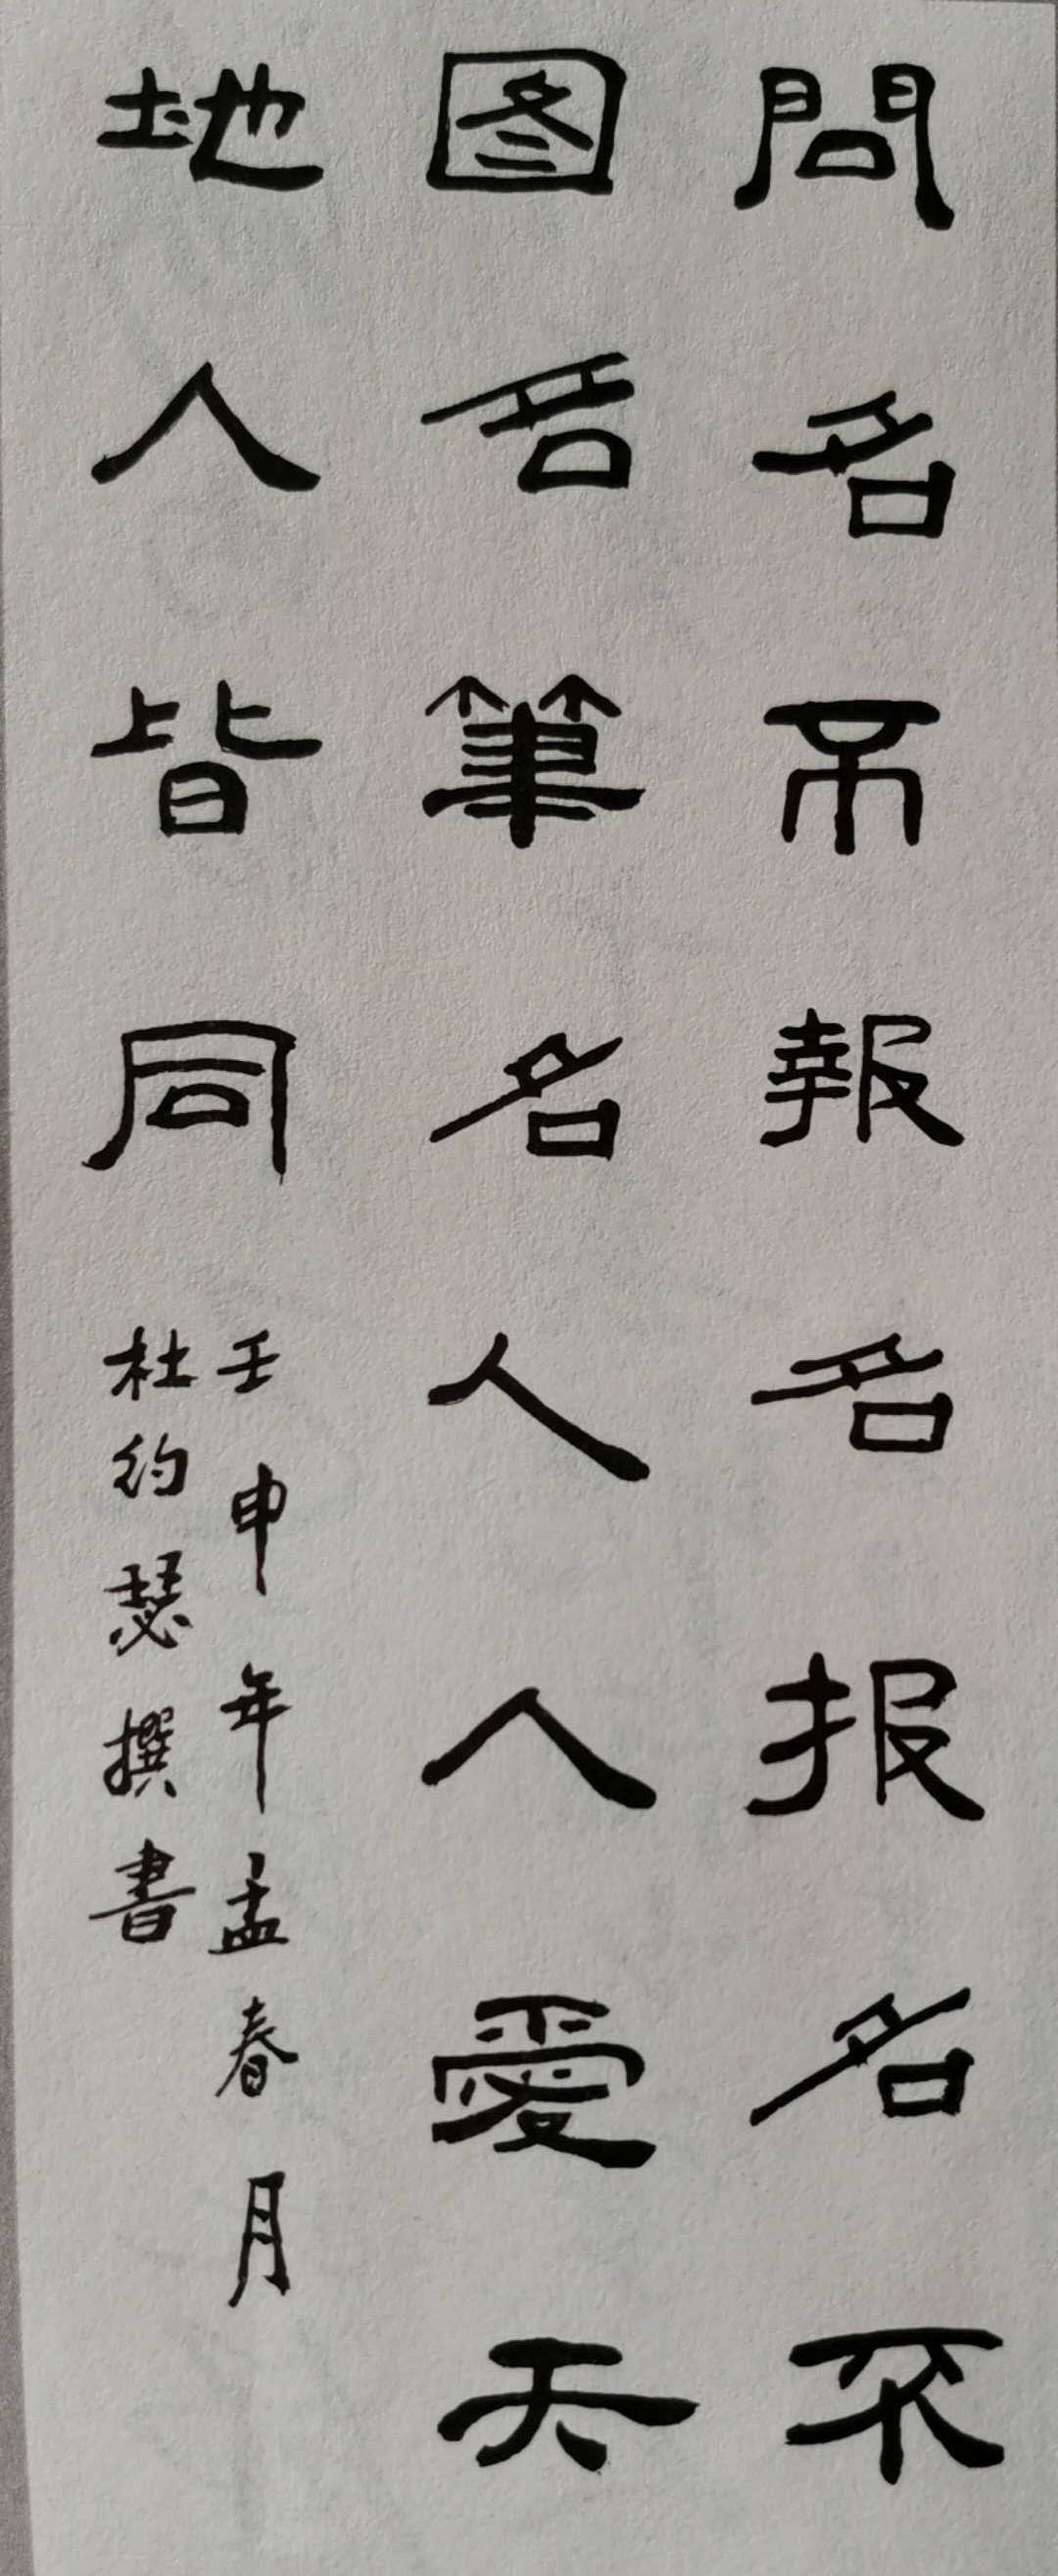 問名不報名报名不
图名筆名人人愛天
地人皆同
壬申年孟春月
杜约瑟撰書